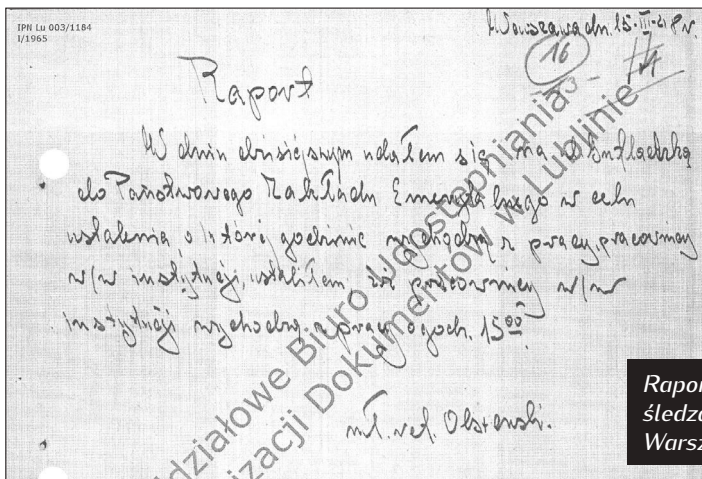 IPN Lu 003/1184
I/1965
Warszawa dn. 15-III-48 r.
16
Raport
W dniu dzisiejszym udałem się na ul.
do Państwowego Zakładu Emerytalnego w celu
ustalenia, o której godzinie wychodzą z pracy, pracownicy
w/w instytucji, ustaliłem, że pracownicy w/w
instytucji wychodzą z pracy o godz. 15⁰⁰.
mł. ref. Olszewski.
działowe Biuro Udostępniania
izacji Dokumentów w Lublinie
Rapor
śledzą
Warsz